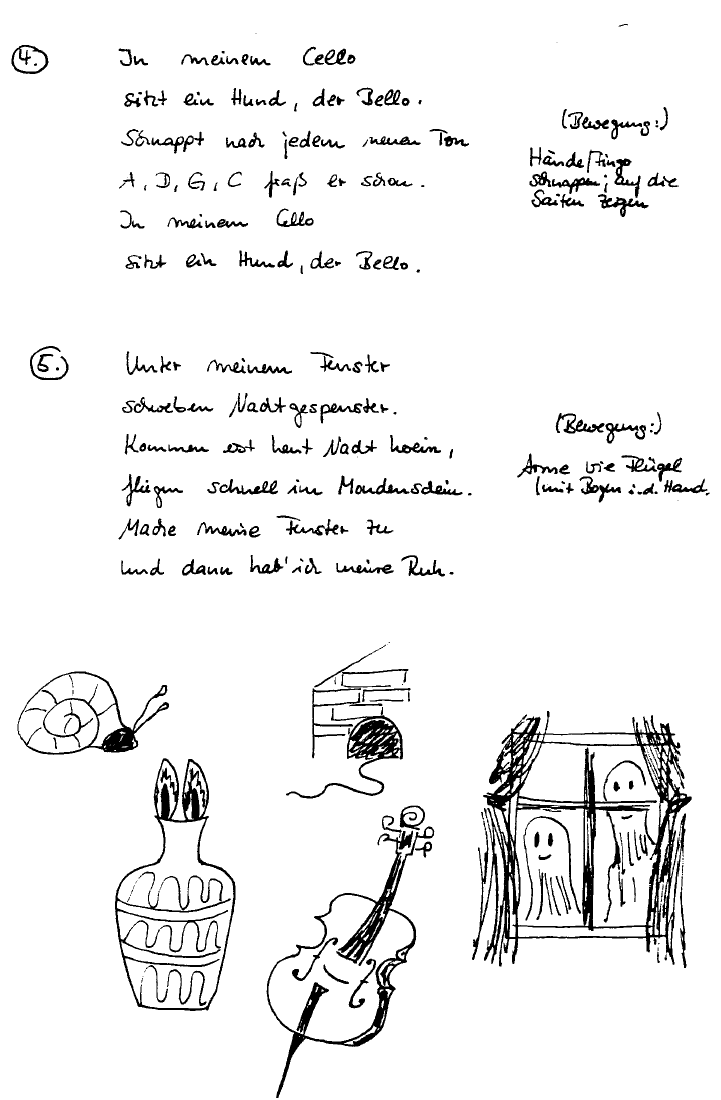 4.
In meinem Cello
sitzt ein Hund, der Bello.
Schnappt nach jedem neuen Ton
A, D, G, C fraß er schon.
In meinem Cello
sitzt ein Hund, der Bello.
(Bewegung:)
Hände/Finger
schnappen; auf die
Saiten zeigen
5.
Unter meinem Fenster
schweben Nachtgespenster.
Kommen erst heut Nacht herein,
fliegen schnell im Mondenschein.
Mache meine Fenster zu
und dann hab' ich meine Ruh.
(Bewegung:)
Arme wie Flügel
(mit Bogen i.d. Hand.